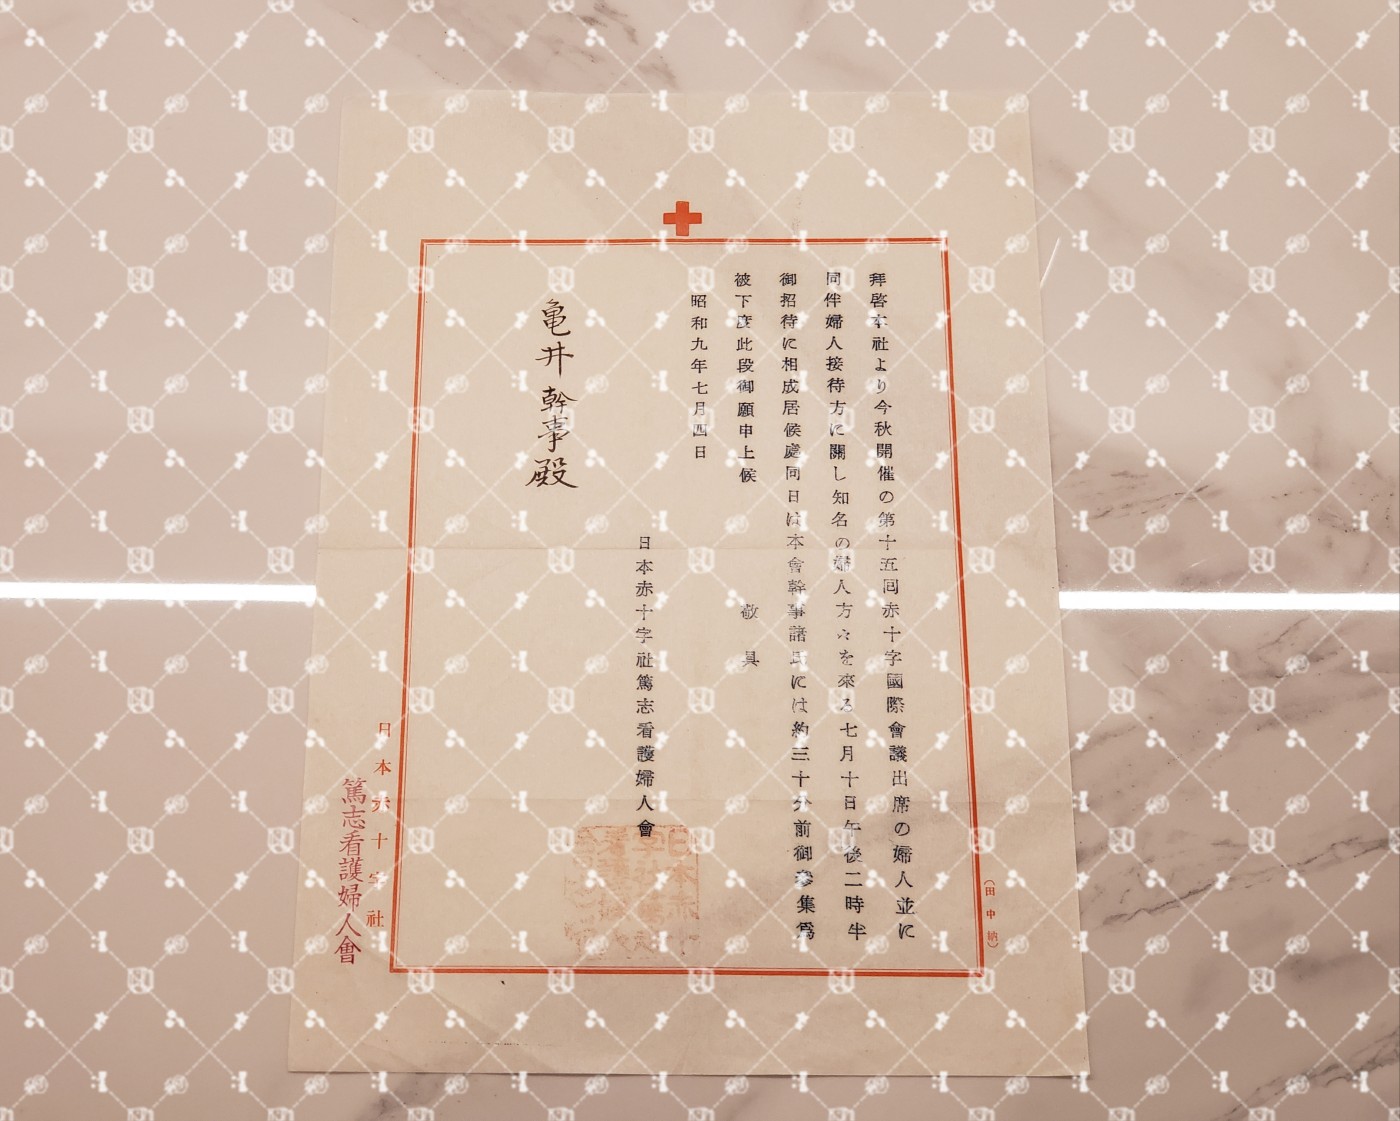 拜啓本社より今秋開催の第十五回赤十字國際會議出席の婦人並に
同伴婦人接待方に關し知名の婦人方々を來る七月十日午後二時半
御招待に相成居候處同日は本會幹事諸氏には約三十分前御參集爲
被下度此段御願申上候
敬具
昭和九年七月四日
日本赤十字社篤志看護婦人會
亀井幹事殿
日本赤十字社
篤志看護婦人會
(田中納)